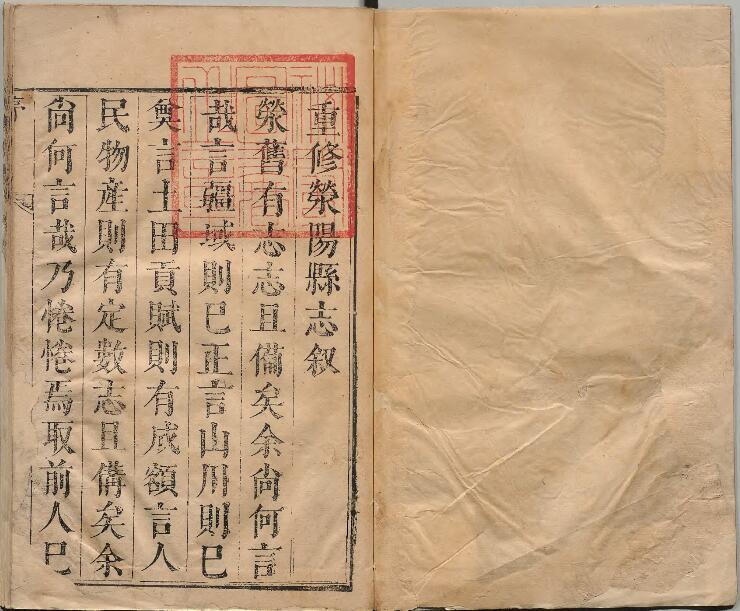 重修滎陽縣志叙
滎舊有志志且備矣余尙何言
哉言疆域則已正言山川則已
奠言土田貢賦則有成額言人
民物產則有定數志且備矣余
尙何言哉乃惓惓焉取前人已